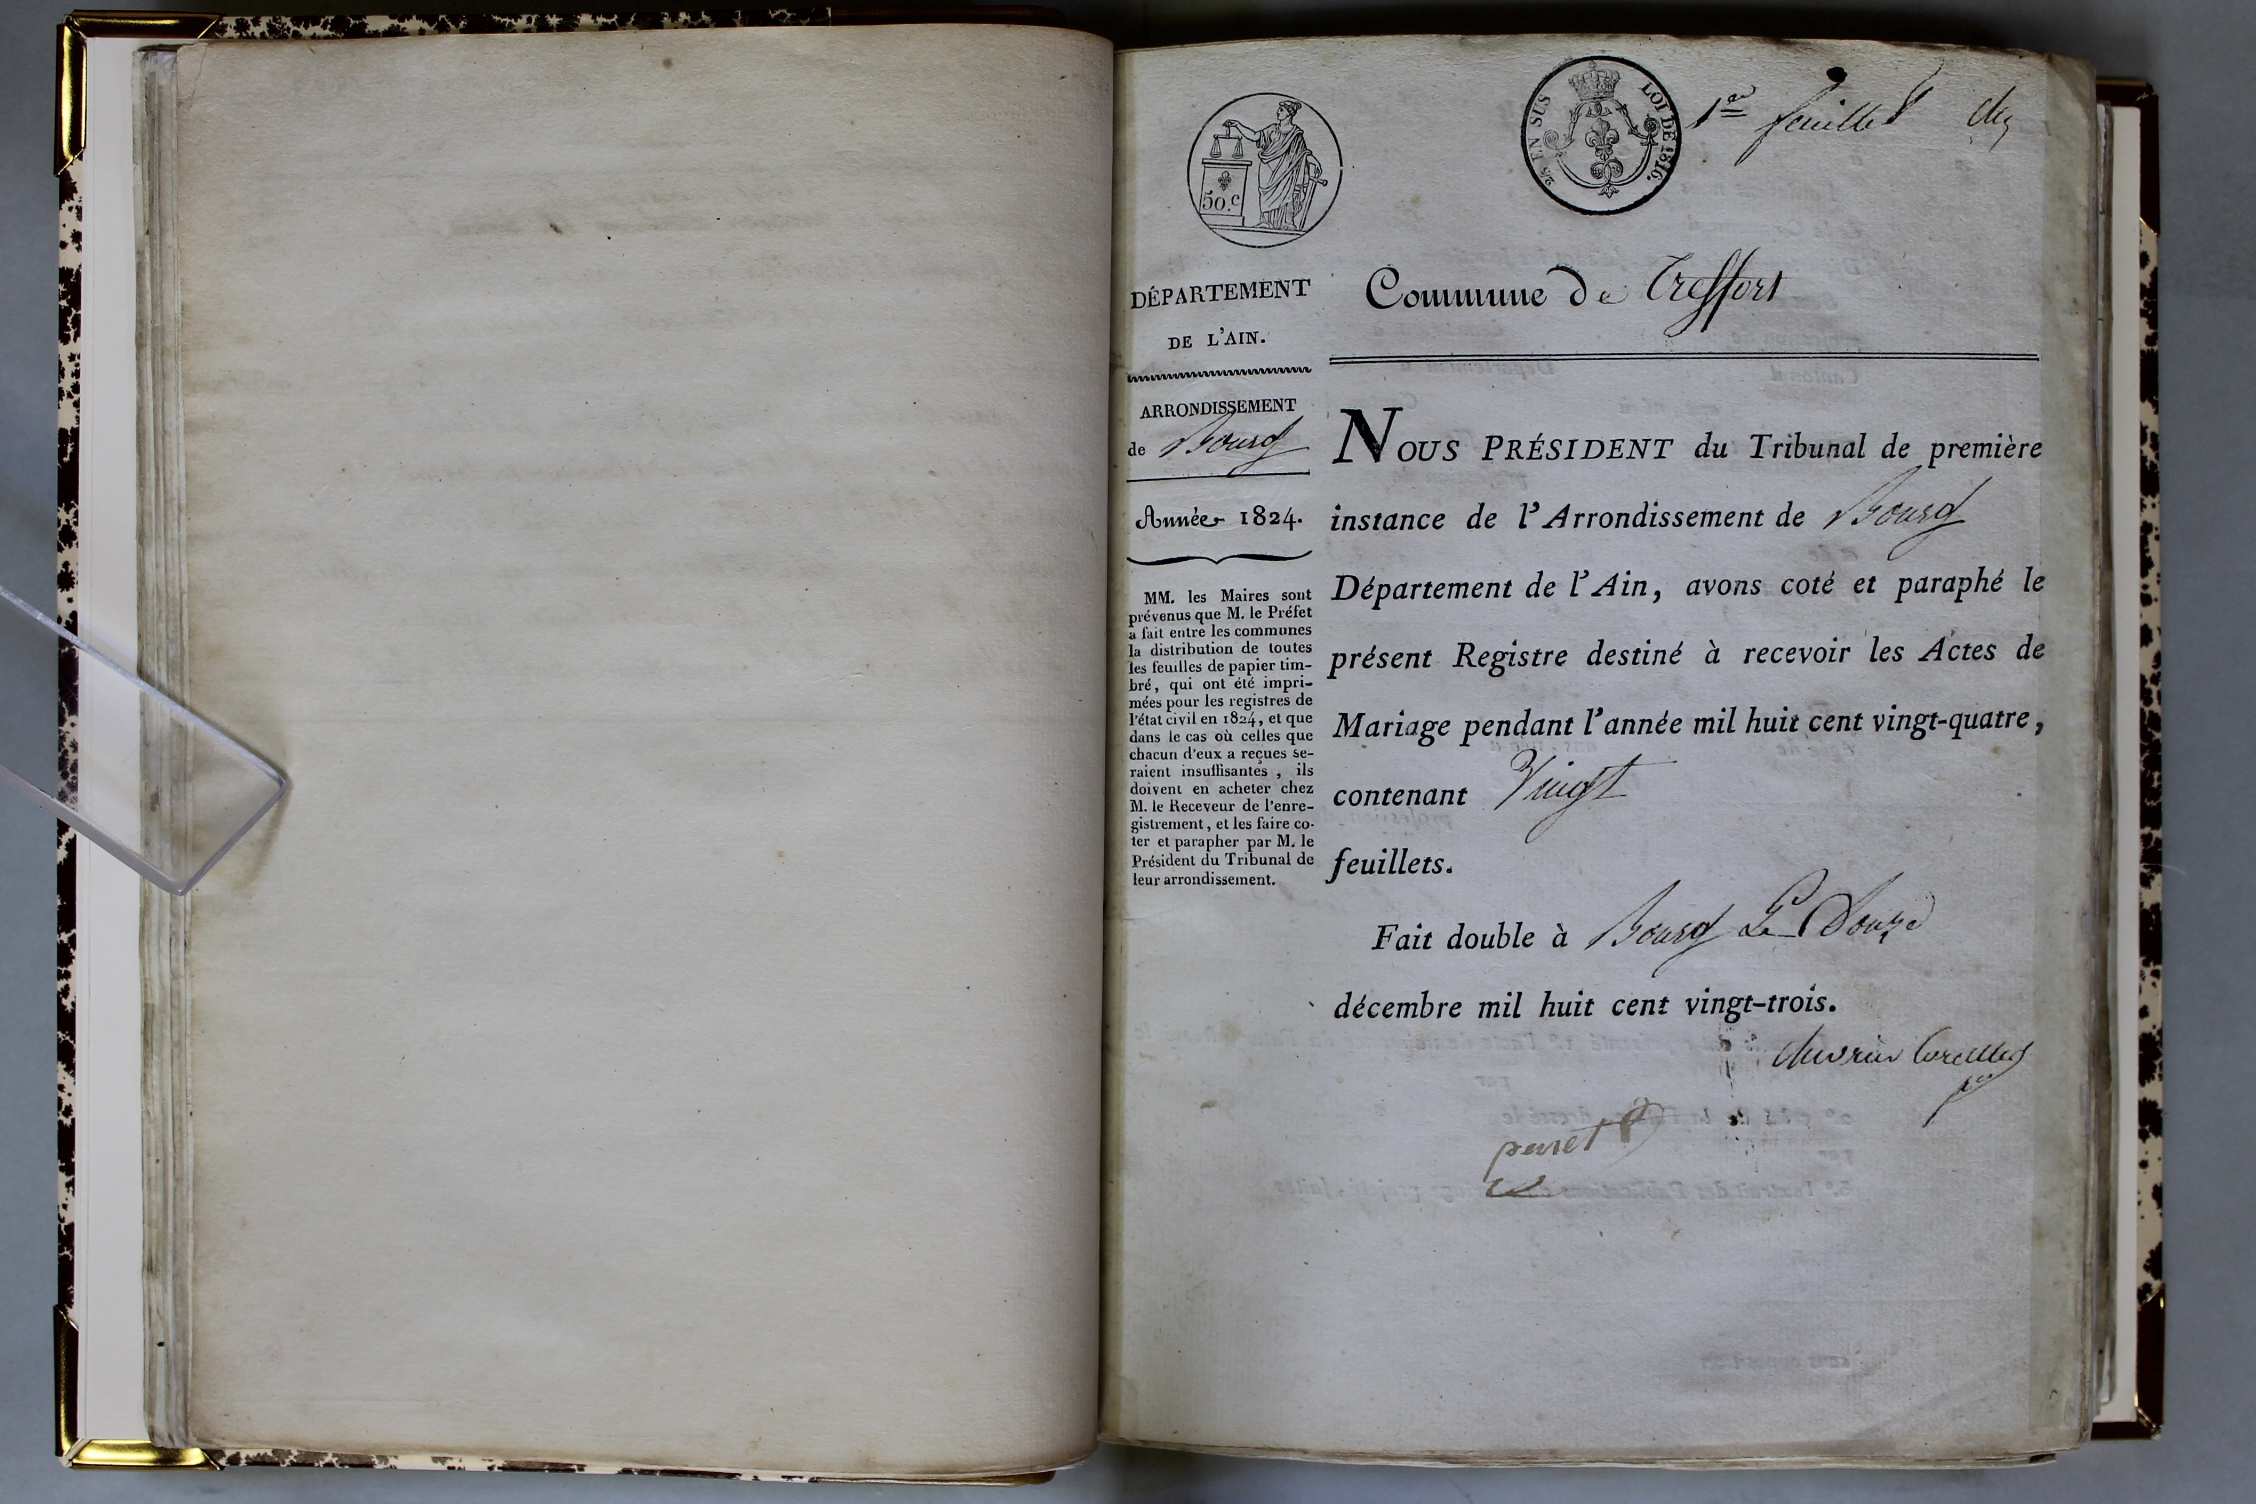 50.c
2/5 EN SUS LOI DE 1816.
1er feuillet
Commune de Treffort
DÉPARTEMENT
DE L'AIN.
ARRONDISSEMENT
de Bourg
Année 1824.
MM. les Maires sont
prévenus que M. le Préfet
a fait entre les communes
la distribution de toutes
les feuilles de papier tim-
bré, qui ont été impri-
mées pour les registres de
l'état civil en 1824, et que
dans le cas où celles que
chacun d'eux a reçues se-
raient insuffisantes, ils
doivent en acheter chez
M. le Receveur de l'enre-
gistrement, et les faire co-
ter et parapher par M. le
Président du Tribunal de
leur arrondissement.
NOUS PRÉSIDENT du Tribunal de première
instance de l'Arrondissement de Bourg
Département de l'Ain, avons coté et paraphé le
présent Registre destiné à recevoir les Actes de
Mariage pendant l'année mil huit cent vingt-quatre,
contenant Vingt
feuillets.
Fait double à Bourg Le Douze
décembre mil huit cent vingt-trois.